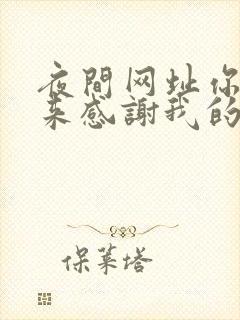 夜間网址你
来感謝我的
保莱塔